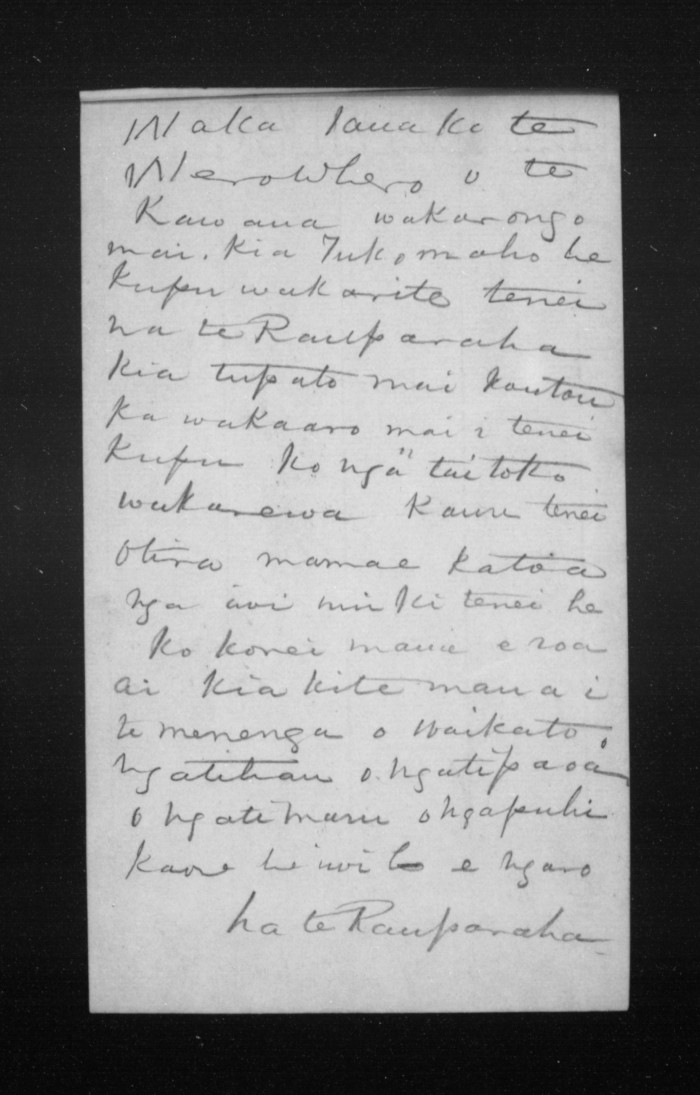 Waka Taua ko te
Werowhero o te
Kawana wakarongo
mai. Kia Tukomaho he
kupu wakarite tenei
na te Rauparaha
kia tupato mai koutou
ka wakaaro mai i tenei
kupu ko nga taitoko
wakarewa Kauru tenei
otira mamae katoa
nga iwi nui ki tenei he
ko konei maua e roa
ai kia kite maua i
te menenga o Waikato o
ngatihau o ngatipaoa
o ngatimaru o ngapuhi
kaore he iwi e ngaro
na te Rauparaha